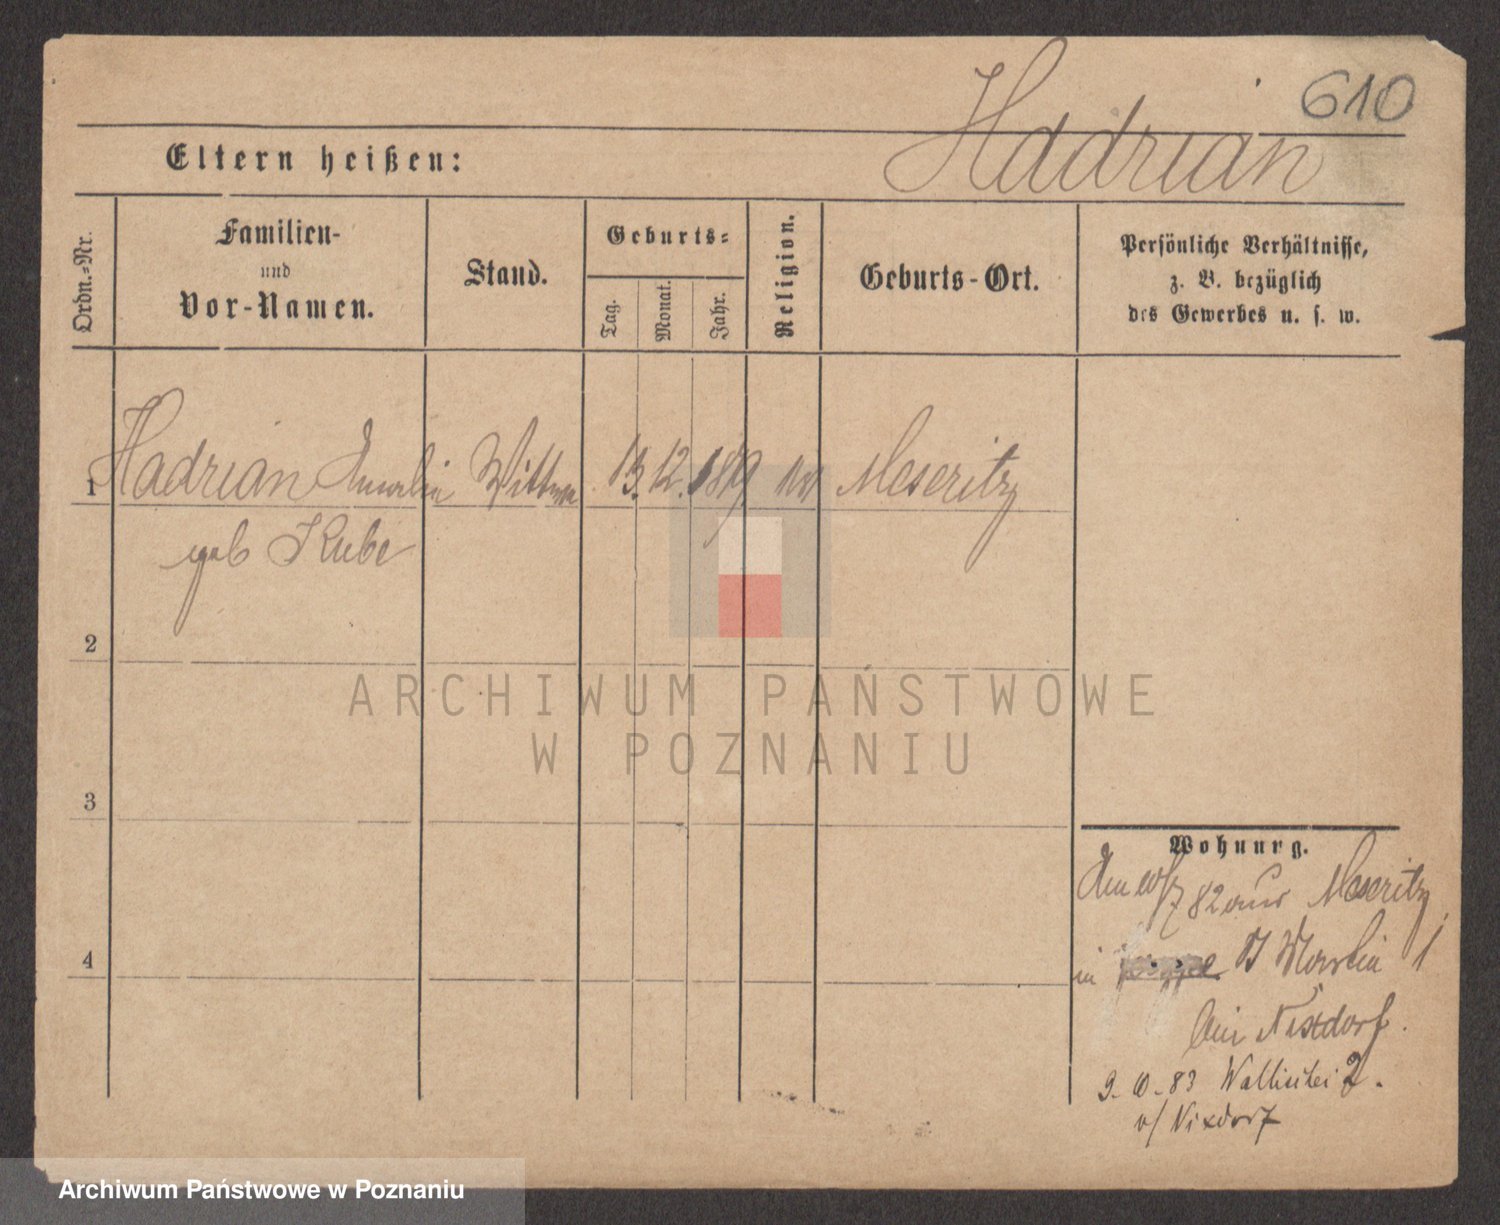 610
Hadrian
Eltern heißen:
Ordn.-Nr.
Familien-
und
Vor-Namen.
Stand.
Geburts-
Tag.
Monat.
Jahr.
Religion.
Geburts-Ort.
Persönliche Verhältnisse,
z. B. bezüglich
des Gewerbes u. s. w.
1 Hadrian Amalie Wittwe 13. 12. Meseritz
geb Kube
2
3
4
Wohnung.
82 aus Meseritz
in St Martin 1
bei Nixdorf.
9. 10. 83 Wallischei 2.
b/ Nixdorf
ARCHIWUM PAŃSTWOWE
W POZNANIU
Archiwum Państwowe w Poznaniu